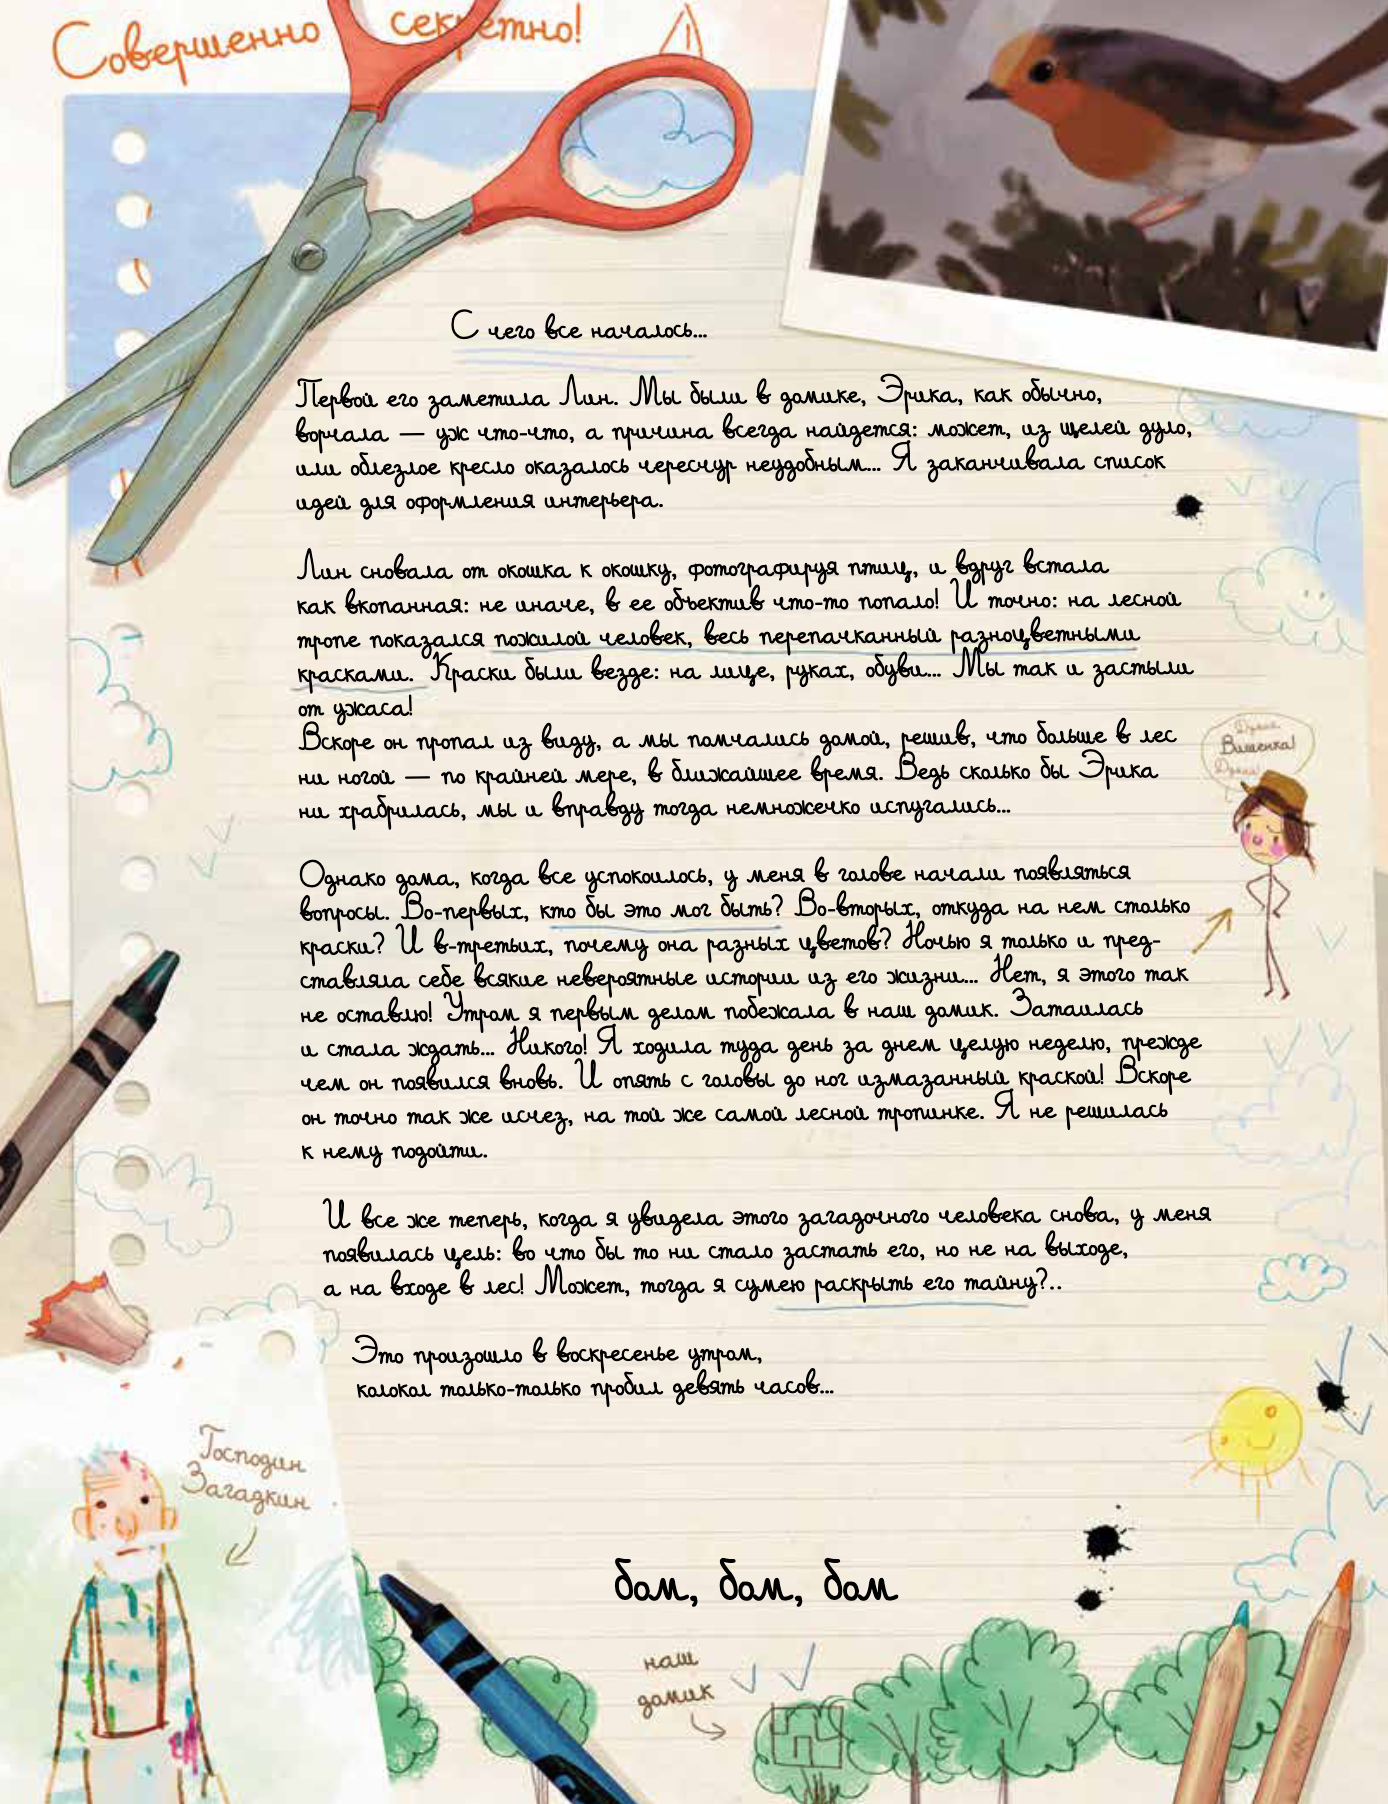 Совершенно секретно!
С чего все началось...
Первой его заметила Лин. Мы были в домике, Эрика, как обычно,
ворчала — уж что-что, а причина всегда найдется: может, из щелей дуло,
или облезлое кресло оказалось чересчур неудобным... Я заканчивала список
идей для оформления интерьера.
Лин сновала от окошка к окошку, фотографируя птиц, и вдруг встала
как вкопанная: не иначе, в ее объектив что-то попало! И точно: на лесной
тропе показался пожилой человек, весь перепачканный разноцветными
красками. Краски были везде: на лице, руках, обуви... Мы так и застыли
от ужаса!
Вскоре он пропал из виду, а мы помчались домой, решив, что больше в лес
ни ногой — по крайней мере, в ближайшее время. Ведь сколько бы Эрика
ни храбрилась, мы и вправду тогда немножечко испугались...
Однако дома, когда все успокоилось, у меня в голове начали появляться
вопросы. Во-первых, кто бы это мог быть? Во-вторых, откуда на нем столько
краски? И в-третьих, почему она разных цветов? Ночью я только и пред-
ставляла себе всякие невероятные истории из его жизни... Нет, я этого так
не оставлю! Утром я первым делом побежала в наш домик. Затаилась
и стала ждать... Никого! Я ходила туда день за днем целую неделю, прежде
чем он появился вновь. И опять с головы до ног измазанный краской! Вскоре
он точно так же исчез, на той же самой лесной тропинке. Я не решилась
к нему подойти.
И все же теперь, когда я увидела этого загадочного человека снова, у меня
появилась цель: во что бы то ни стало застать его, но не на выходе,
а на входе в лес! Может, тогда я сумею раскрыть его тайну?..
Это произошло в воскресенье утром,
колокол только-только пробил девять часов...
бом, бом, бом
Вишенка!
Господин
Загадкин
наш
домик